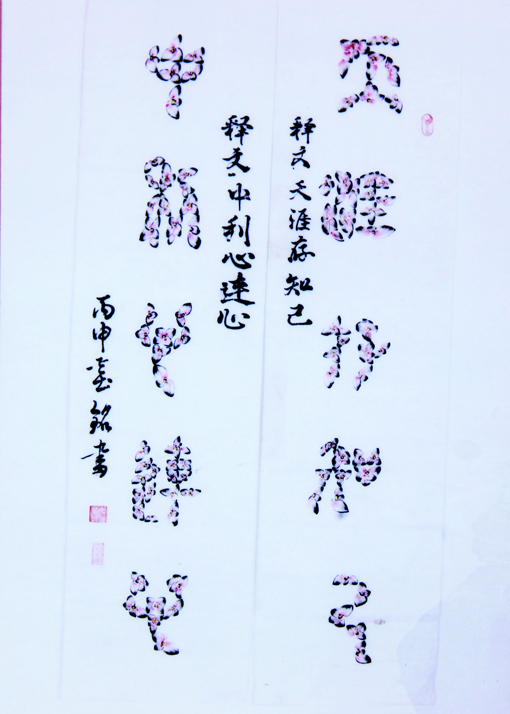 天涯存知己
释文天涯存知己
释文中利心連心
中利心連心
丙申铭书